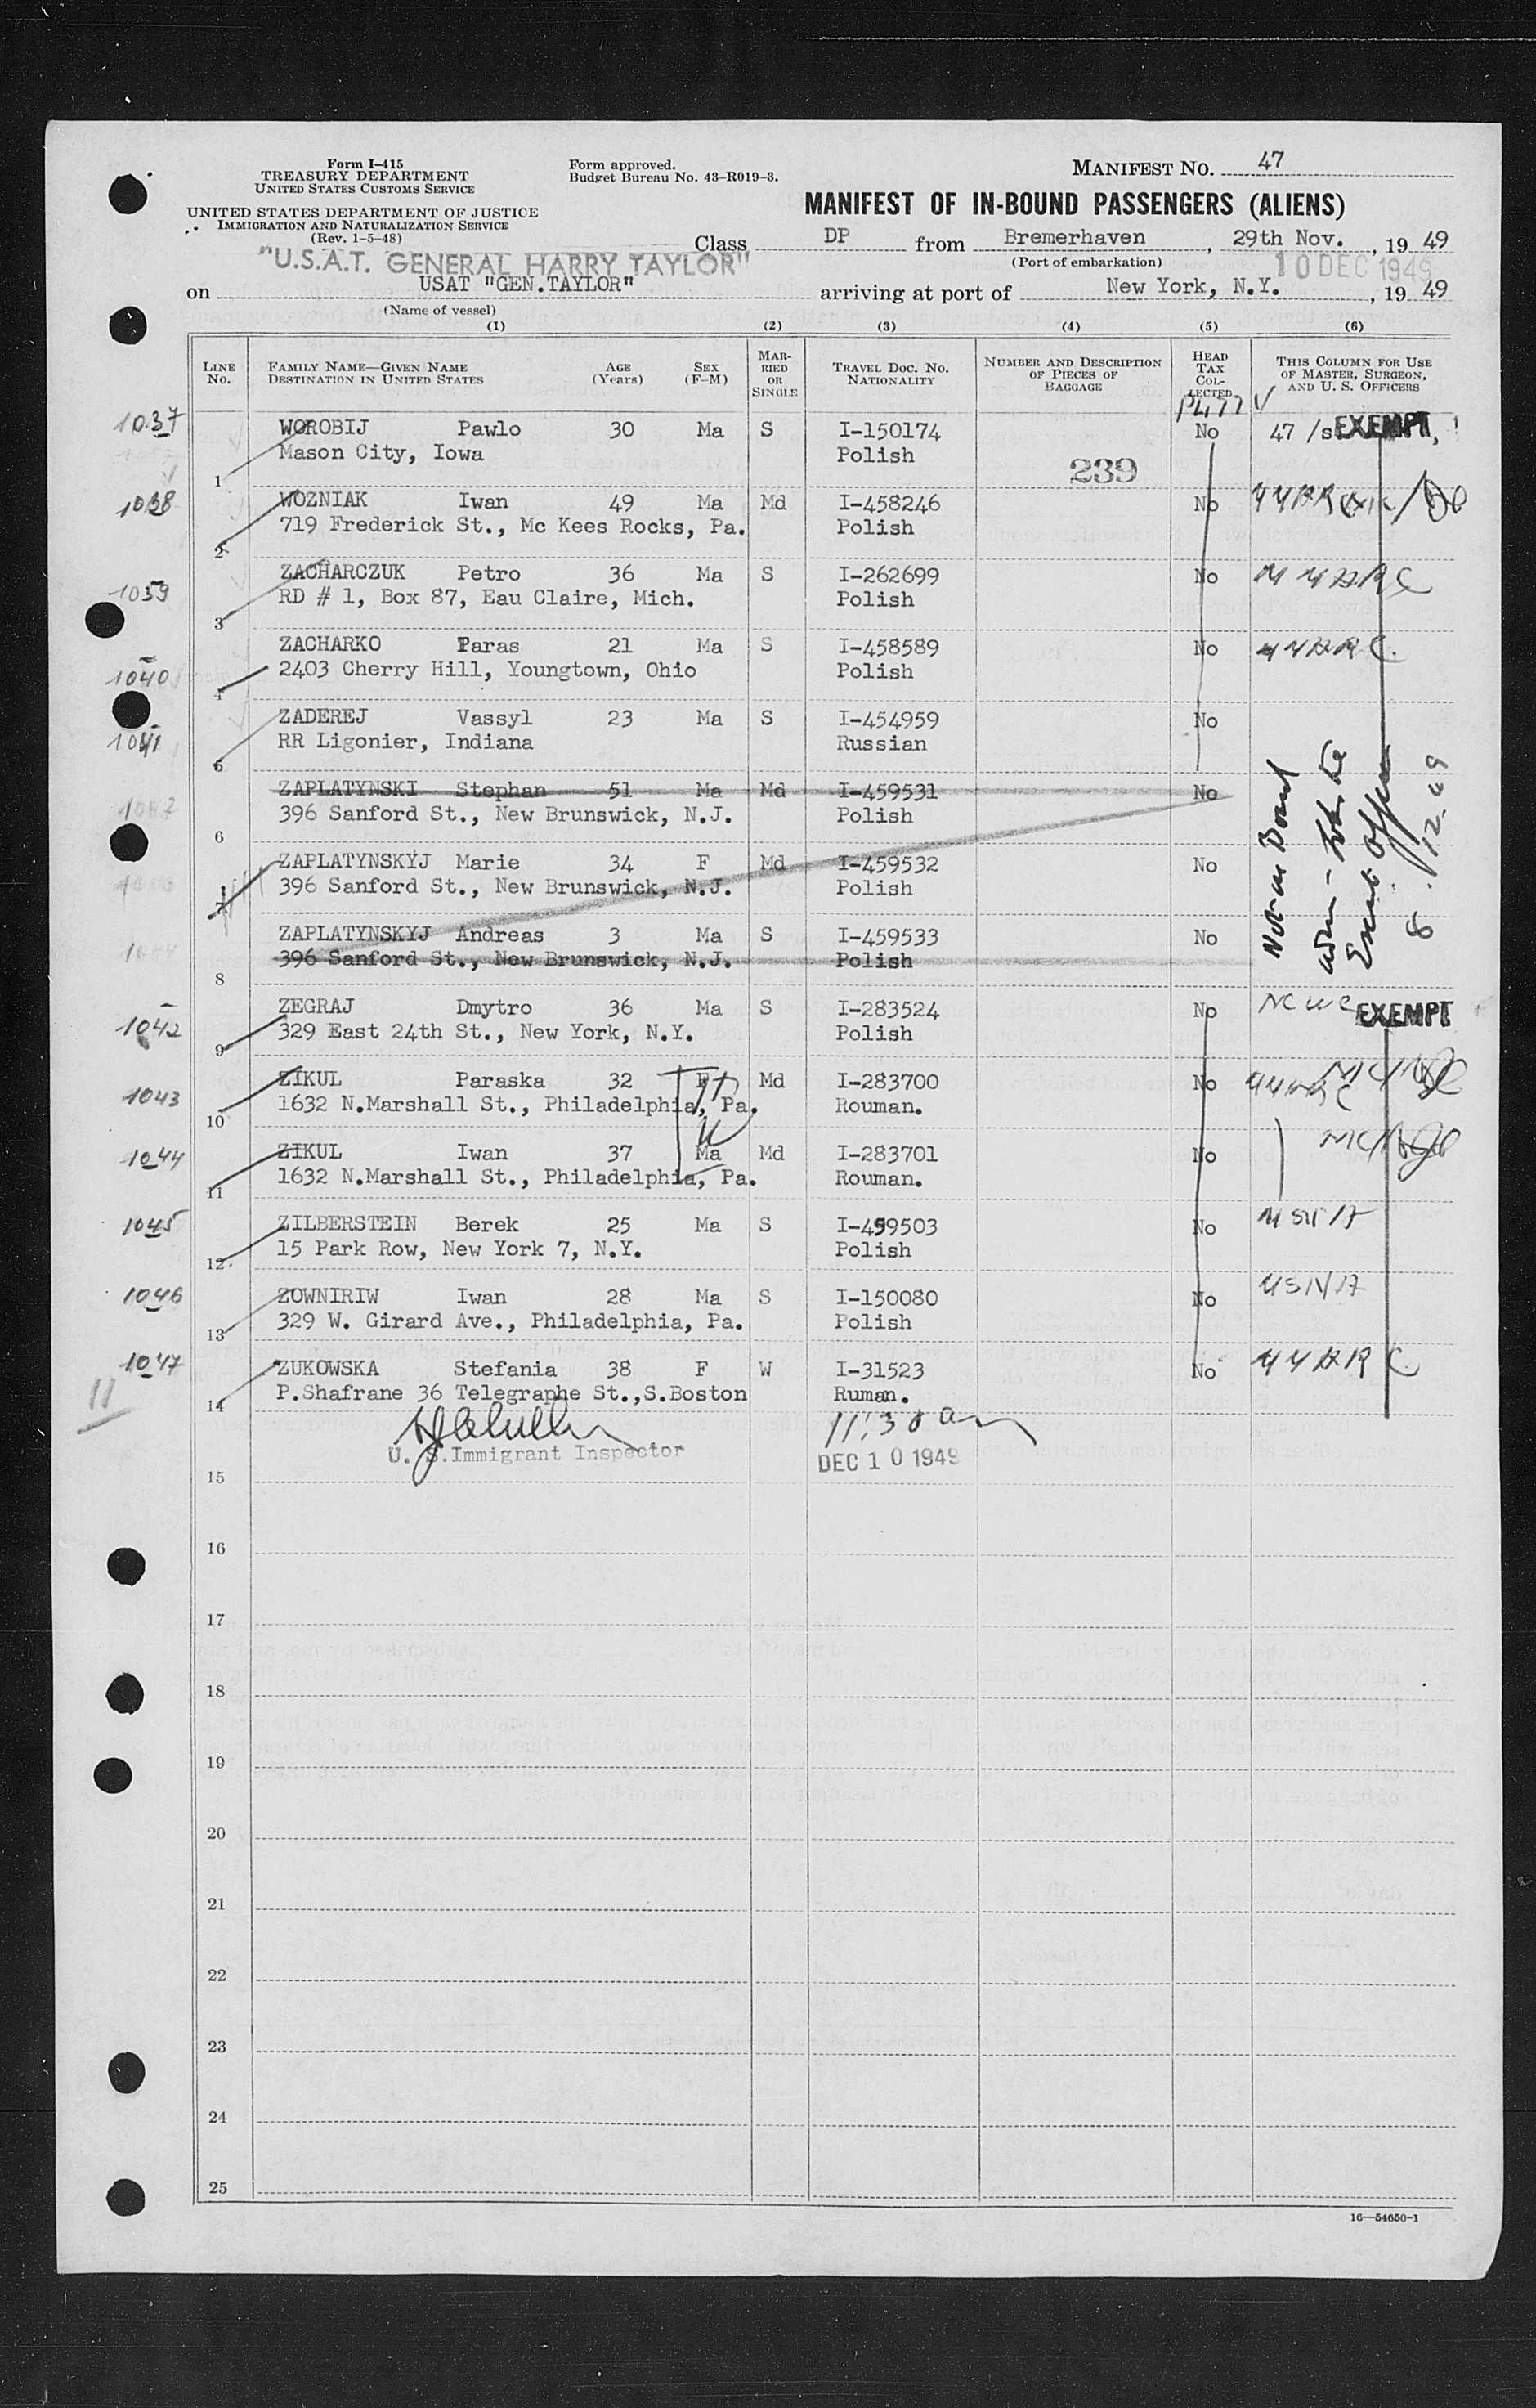 Form I-415
TREASURY DEPARTMENT
UNITED STATES CUSTOMS SERVICE
UNITED STATES DEPARTMENT OF JUSTICE
IMMIGRATION AND NATURALIZATION SERVICE
(Rev. 1-5-48)
Form approved.
Budget Bureau No. 43-R019-3.
MANIFEST NO. 47
MANIFEST OF IN-BOUND PASSENGERS (ALIENS)
Class DP from Bremerhaven, 29th Nov., 1949
(Port of embarkation)
"U.S.A.T. GENERAL HARRY TAYLOR"
10 DEC 1949
on USAT "GEN.TAYLOR" arriving at port of New York, N.Y., 1949
(Name of vessel)
(1) (2) (3) (4) (5) (6)
LINE NO. FAMILY NAME—GIVEN NAME DESTINATION IN UNITED STATES AGE (Years) SEX (F-M) MARRIED OR SINGLE TRAVEL DOC. NO. NATIONALITY NUMBER AND DESCRIPTION OF PIECES OF BAGGAGE HEAD TAX COLLECTED THIS COLUMN FOR USE OF MASTER, SURGEON, AND U. S. OFFICERS
1037 WOROBIJ Pawlo 30 Ma S I-150174 No 47 EXEMPT
1 Mason City, Iowa Polish
239
1038 WOZNIAK Iwan 49 Ma Md I-458246 No
2 719 Frederick St., Mc Kees Rocks, Pa. Polish
1039 ZACHARCZUK Petro 36 Ma S I-262699 No
3 RD # 1, Box 87, Eau Claire, Mich. Polish
1040 ZACHARKO Taras 21 Ma S I-458589 No
4 2403 Cherry Hill, Youngtown, Ohio Polish
1041 ZADEREJ Vassyl 23 Ma S I-454959 No
5 RR Ligonier, Indiana Russian
ZAPLATYNSKI Stephan 51 Ma Md I-459531 No
6 396 Sanford St., New Brunswick, N.J. Polish
ZAPLATYNSKYJ Marie 34 F Md I-459532 No
7 396 Sanford St., New Brunswick, N.J. Polish
ZAPLATYNSKYJ Andreas 3 Ma S I-459533 No
8 396 Sanford St., New Brunswick, N.J. Polish
Not on Board
8.12.49
1042 ZEGRAJ Dmytro 36 Ma S I-283524 No NCWC EXEMPT
9 329 East 24th St., New York, N.Y. Polish
1043 ZIKUL Paraska 32 F Md I-283700 No
10 1632 N.Marshall St., Philadelphia, Pa. Rouman.
1044 ZIKUL Iwan 37 Ma Md I-283701 No
11 1632 N.Marshall St., Philadelphia, Pa. Rouman.
1045 ZILBERSTEIN Berek 25 Ma S I-459503 No
12 15 Park Row, New York 7, N.Y. Polish
1046 ZOWNIRIW Iwan 28 Ma S I-150080 No
13 329 W. Girard Ave., Philadelphia, Pa. Polish
1047 ZUKOWSKA Stefania 38 F W I-31523 No
14 P.Shafrane 36 Telegraphe St.,S.Boston Ruman.
11
11:30 am
U. S.Immigrant Inspector DEC 10 1949
15
16
17
18
19
20
21
22
23
24
25
16—54650-1